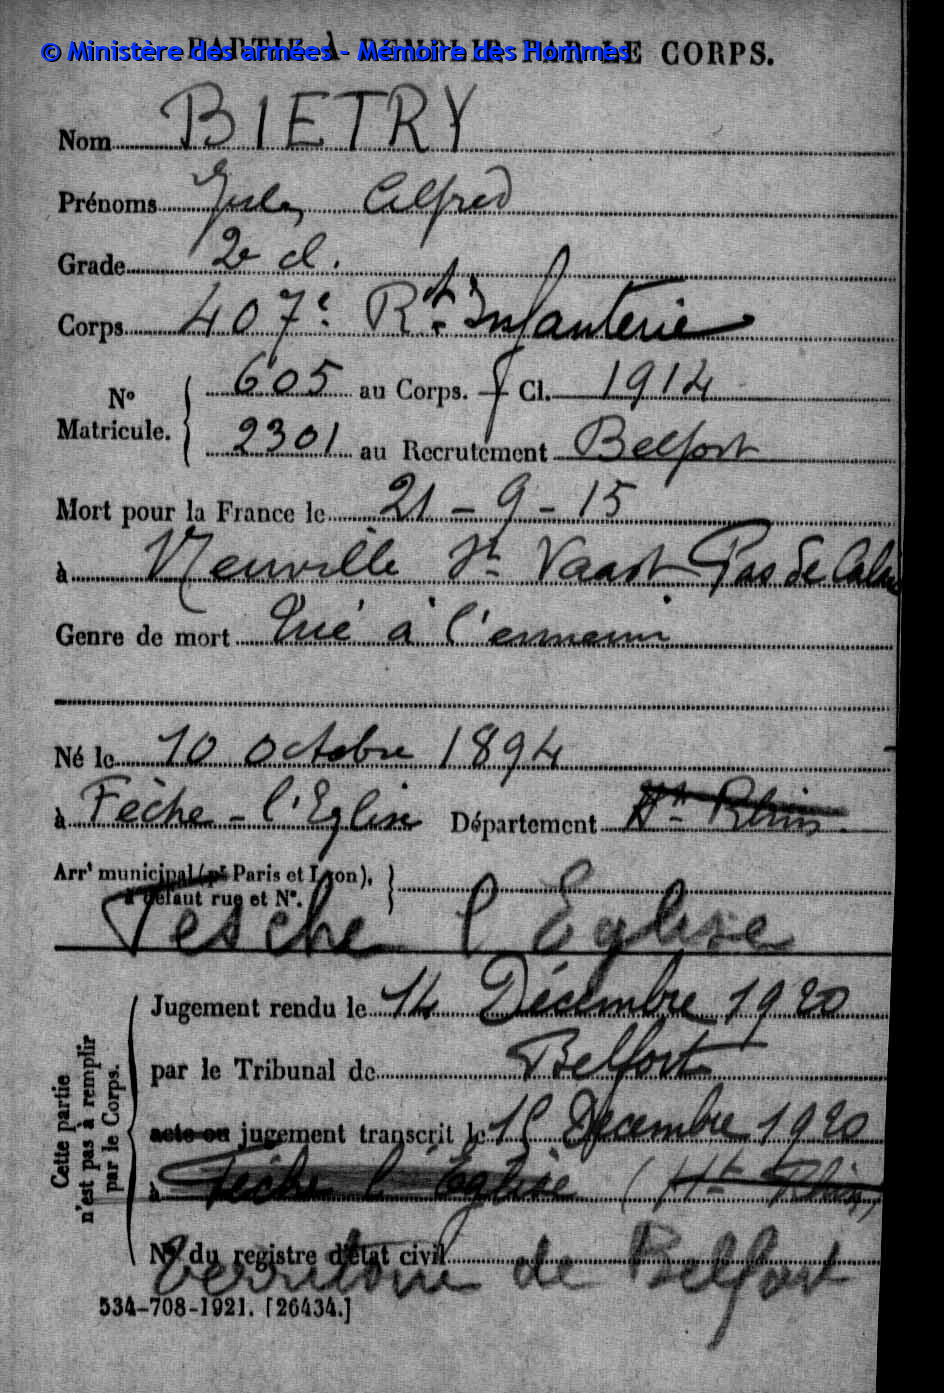 PARTIE À REMPLIR PAR LE CORPS.
© Ministère des armées - Mémoire des Hommes
Nom BIETRY
Prénoms Jules Alfred
Grade 2e cl.
Corps 407e Rt. Infanterie
No Matricule. 605 au Corps. Cl. 1914
2301 au Recrutement Belfort
Mort pour la France le 21 - 9 - 15
à Neuville St Vaast Pas de Calais
Genre de mort Tué à l'ennemi
Né le 10 octobre 1894
à Fêche - l'Eglise Département Ht Rhin.
Arrt municipal (pr Paris et Lyon),
à défaut rue et No.
Fesche l Eglise
Cette partie n'est pas à remplir par le Corps.
Jugement rendu le 14 Décembre 1920
par le Tribunal de Belfort
acte ou jugement transcrit le 15 Décembre 1920
à Fêche l'Eglise (Ht Rhin)
No du registre d'état civil
Territoire de Belfort
534-708-1921. [26434.]